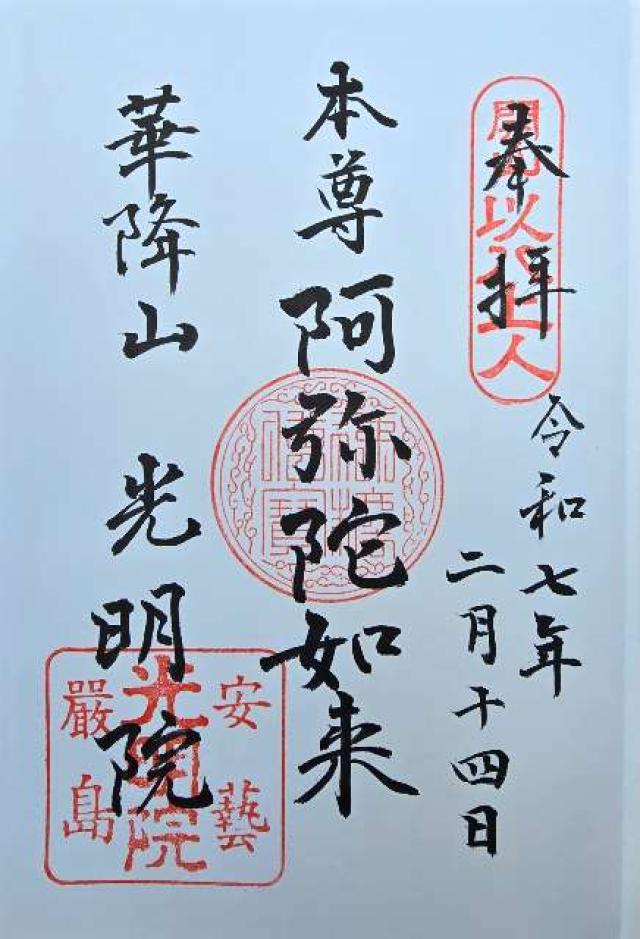 奉拝
令和七年
二月十四日
本尊阿弥陀如来
華降山 光明院
安藝
光明院
嚴島